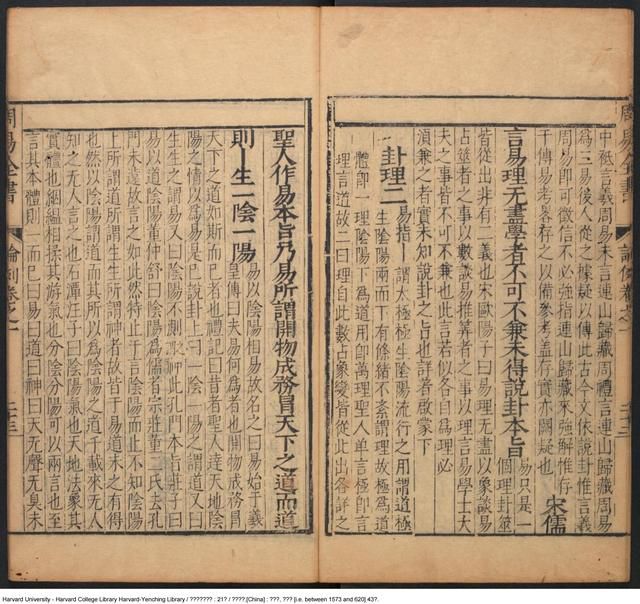 中祇言義周易未言連山歸藏周禮言連山歸藏周易
為三易後人從之據疑以傳此古今文依說卦惟言義
周易即可徵信不必強指連山歸藏來強解惟存
干傳易考畧存之以備參考盖存實亦闕疑也
宋儒
言易理无盡學者不可不兼未得說卦本旨
易只是一
個理卦筮
皆從出非有二義也宋歐陽子曰易理无盡以象談易
占筮者之事以數談易推筭者之事以理言易學士大
夫之事皆不可不兼也此言若似各自爲理必
湏兼之者實未知說卦之旨也詳着啟蒙下
卦理二
易指丨謂太極極生陰陽流行之用謂道極
生陰陽兩而下有條緒不紊謂理故極為道
體卽一理陰陽下爲道用卽萬理聖人单言極卽言
理言道故二曰理自此數占象變皆從此出各詳之
周易全書
論例卷之一
二十三
聖人作易本旨乃易所謂開物成務冒天下之道而道
則丨生一陰一陽
易以陰陽相易故名之曰易始于羲
皇傳曰夫易何為者也開物成務冒
天下之道如斯而已者也禮記曰昔者聖人建天地陰
陽之情以為易是巳說卦上曰一陰一陽之謂道又曰
生生之謂易又曰陰陽不測之謂神此孔門本旨莊子曰
易以道陰陽董仲舒曰陰陽為儒者宗莊董二氏去孔
門未遠故言之如此然特止于言陰陽而止不知陰陽
上所謂道所謂生生所謂神者故皆于易道未之有得
也然以陰陽謂道而其所以為陰陽之道千載來无人
知之无人言之也石潭汪子曰陰陽氣也天地法象其
實體也絪緼相揉其游氣也分陰分陽可以兩言也至
言其本體則一而已曰易曰道曰神曰天无聲无臭未
Harvard University - Harvard College Library Harvard-Yenching Library / ??????? : 21? / ????.[China] : ???, ??? [i.e. between 1573 and 620].43?.